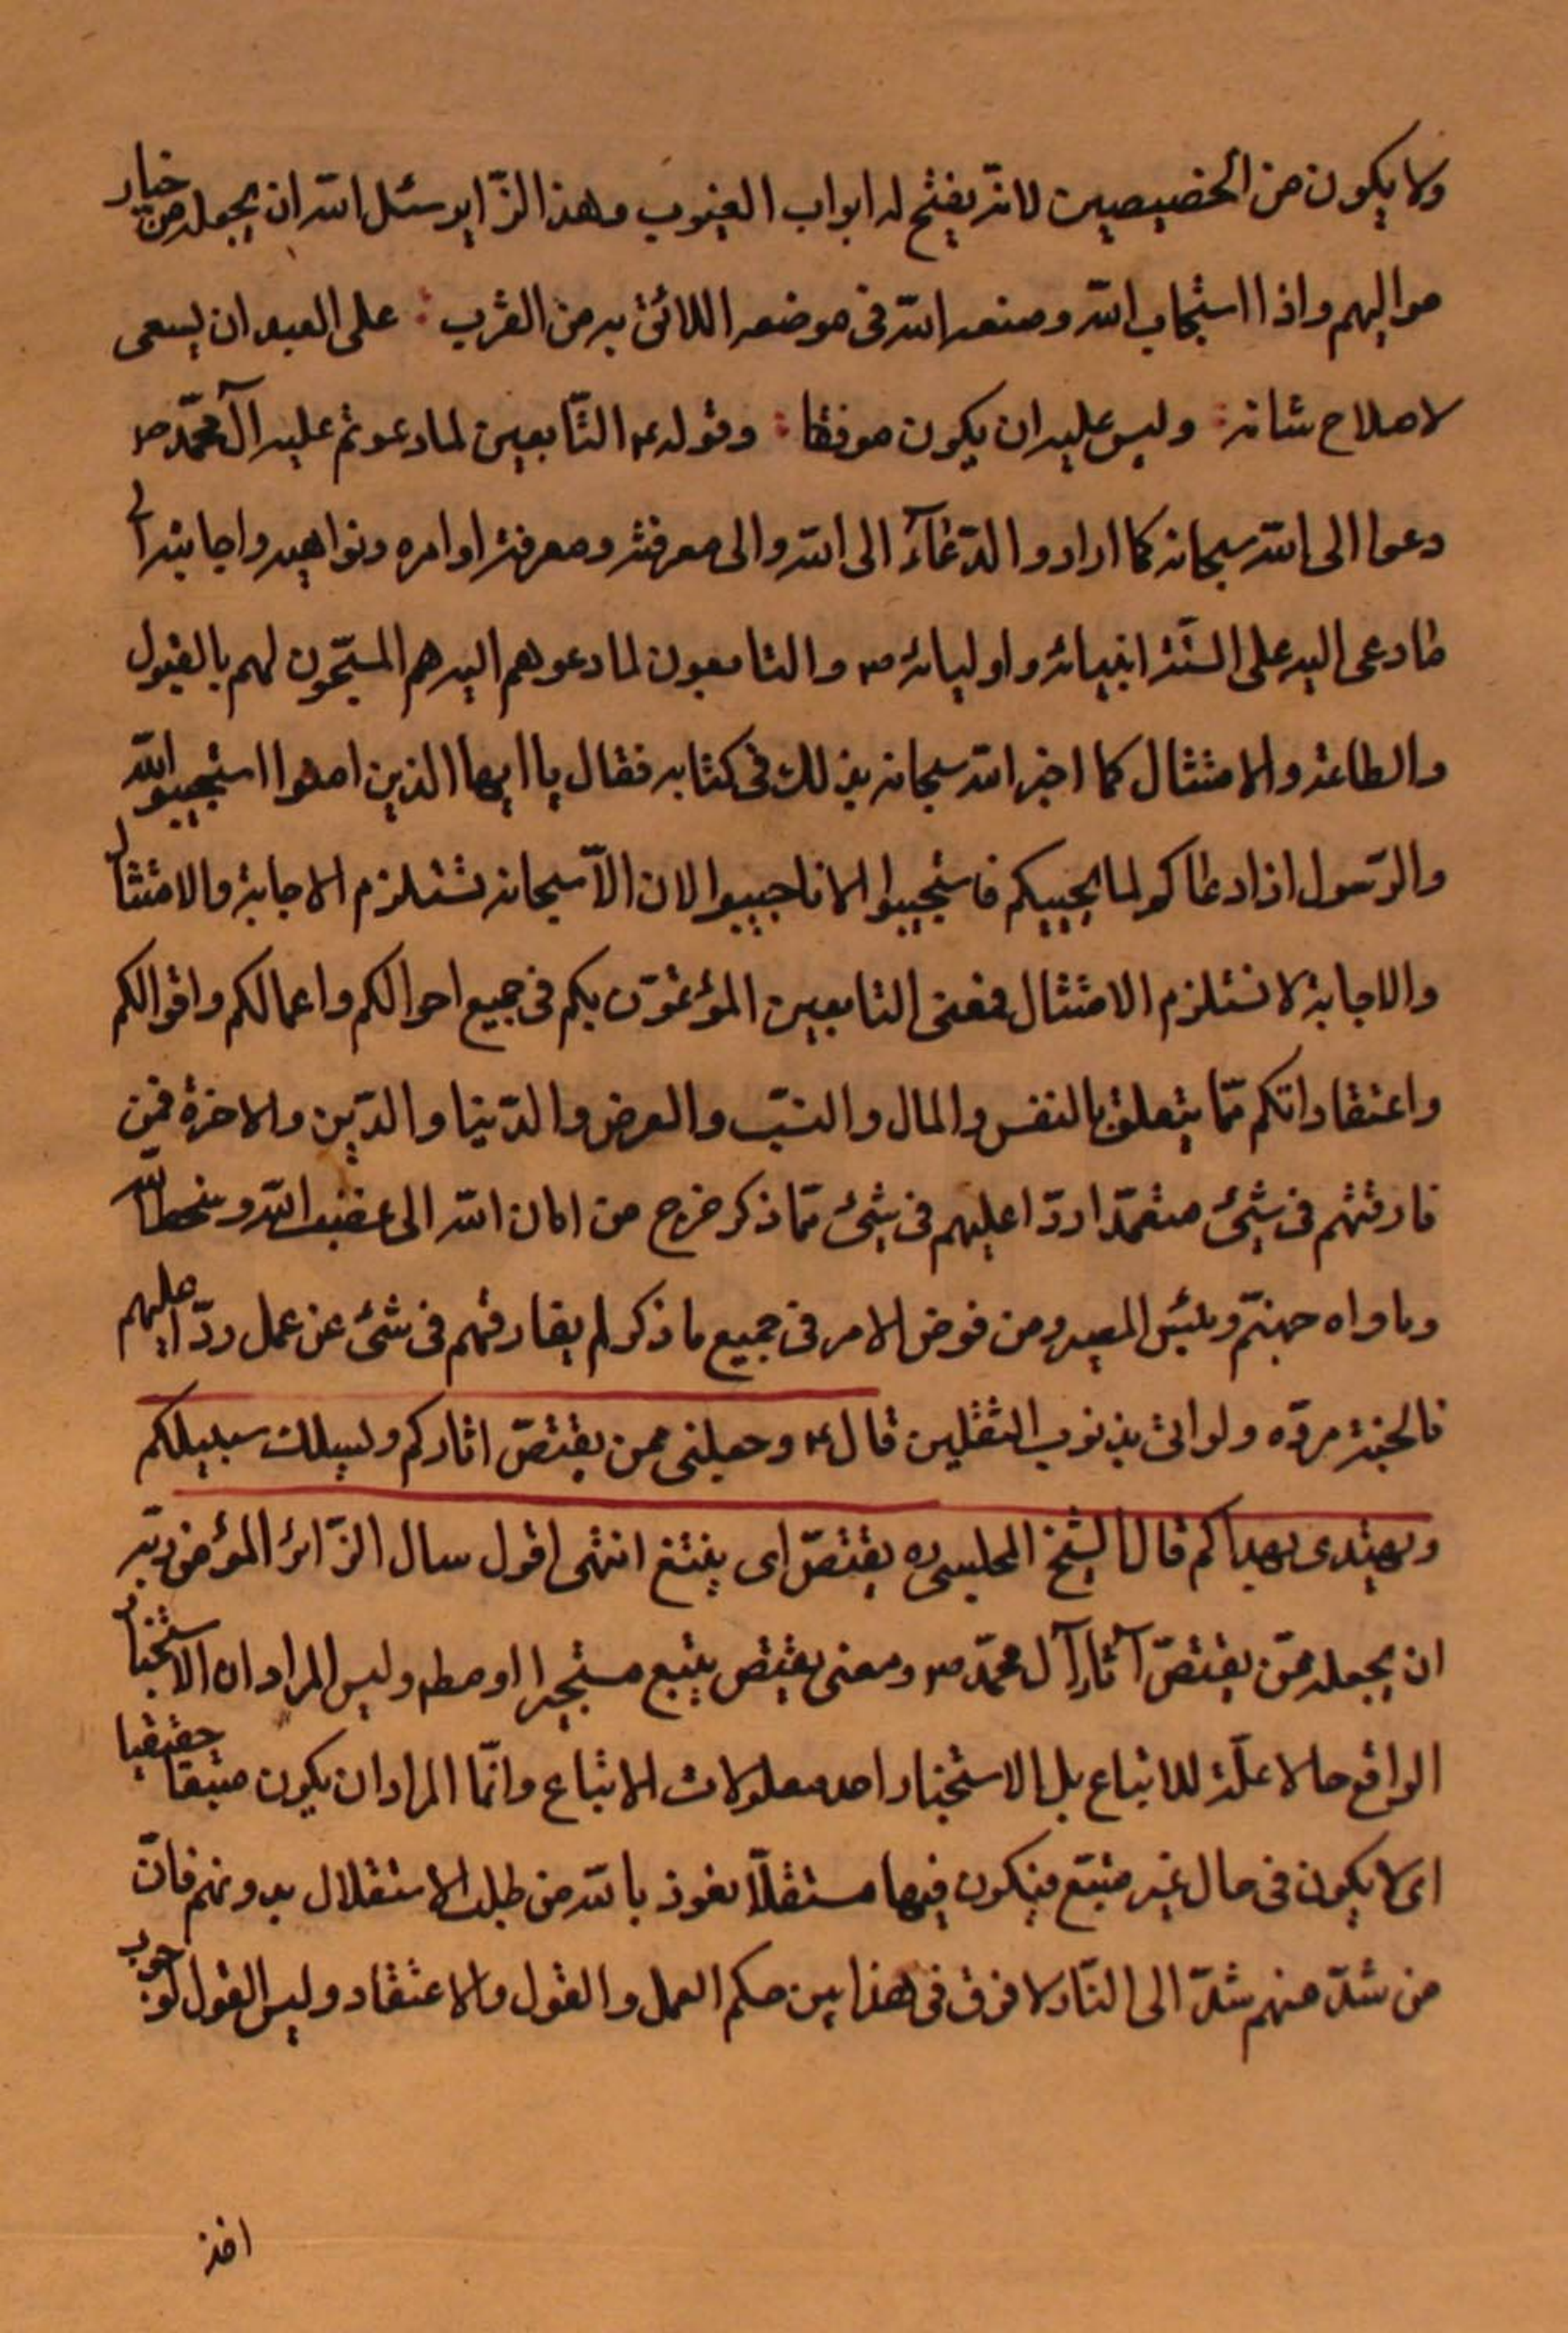 ولا يكون من الخصيصين لانه يفتح له ابواب الغيوب وهذا الزّاير سئل الله ان يجعله من خيار
مواليهم واذا استجاب الله وضعه الله فى موضعه اللائق به من القرب : على العبد ان يسعى
لاصلاح شانه : وليس عليه ان يكون موفقا : وقوله ع التّابعين لما دعوتم عليه آل محمّد ص
دعوا الى الله سبحانه كما ارادوا الدّعآء الى الله والى معرفته ومعرفة اوامره ونواهيه واجابته الى
ما دعى اليه على السنة انبيائه واوليائه ص والتابعون لما دعوهم اليه هم المستجيبون لهم بالقبول
والطاعة والامتثال كما اخبر الله سبحانه بذلك فى كتابه فقال يا ايها الذين امنوا استجيبوا لله
والرّسول اذا دعاكم لما يحييكم فاستجيبوا لا اجيبوا لان الاستجابة تستلزم الاجابة والامتثال
والاجابة لا تستلزم الامتثال فمعنى التابعين المؤتمّون بكم فى جميع احوالكم واعمالكم واقوالكم
واعتقاداتكم ممّا يتعلق بالنفس والمال والنسب والعرض والدّنيا والدّين والاخرة فمن
فارقهم فى شئ متعمّدا ردّا عليهم فى شئ ممّا ذكر خرج من امان الله الى غضب الله وسخط الله
وماواه جهنّم وبئس المصير ومن فوض الامر فى جميع ما ذكر لم يفارقهم فى شئ عن عمل ردّا عليهم
فالجنة مردّه ولو اتى بذنوب الثقلين قال ع وجعلنى ممن يقتصّ اثاركم ويسلك سبيلكم
ويهتدى بهداكم قال الشيخ المجلسى ره يقتصّ اى يتبع انتهى اقول سال الزّائر المؤمن ربّه
ان يجعله ممّن يقتصّ آثار آل محمّد ص ومعنى يقتص يتبع مستخبرا او مط وليس المراد ان الاستخبار
الواقع حالا علّة للاتباع بل الاستخبار احد معلولات الاتباع وانّما المراد ان يكون متبعا حقيقيا
اى لا يكون فى حال غير متبّع فيكون فيها مستقلّا نعوذ بالله من طلب الاستقلال بدونهم فانّ
من شذّ منهم شذّ الى النّار لا فرق فى هذا بين حكم العمل والقول والاعتقاد وليس القول لوجوب